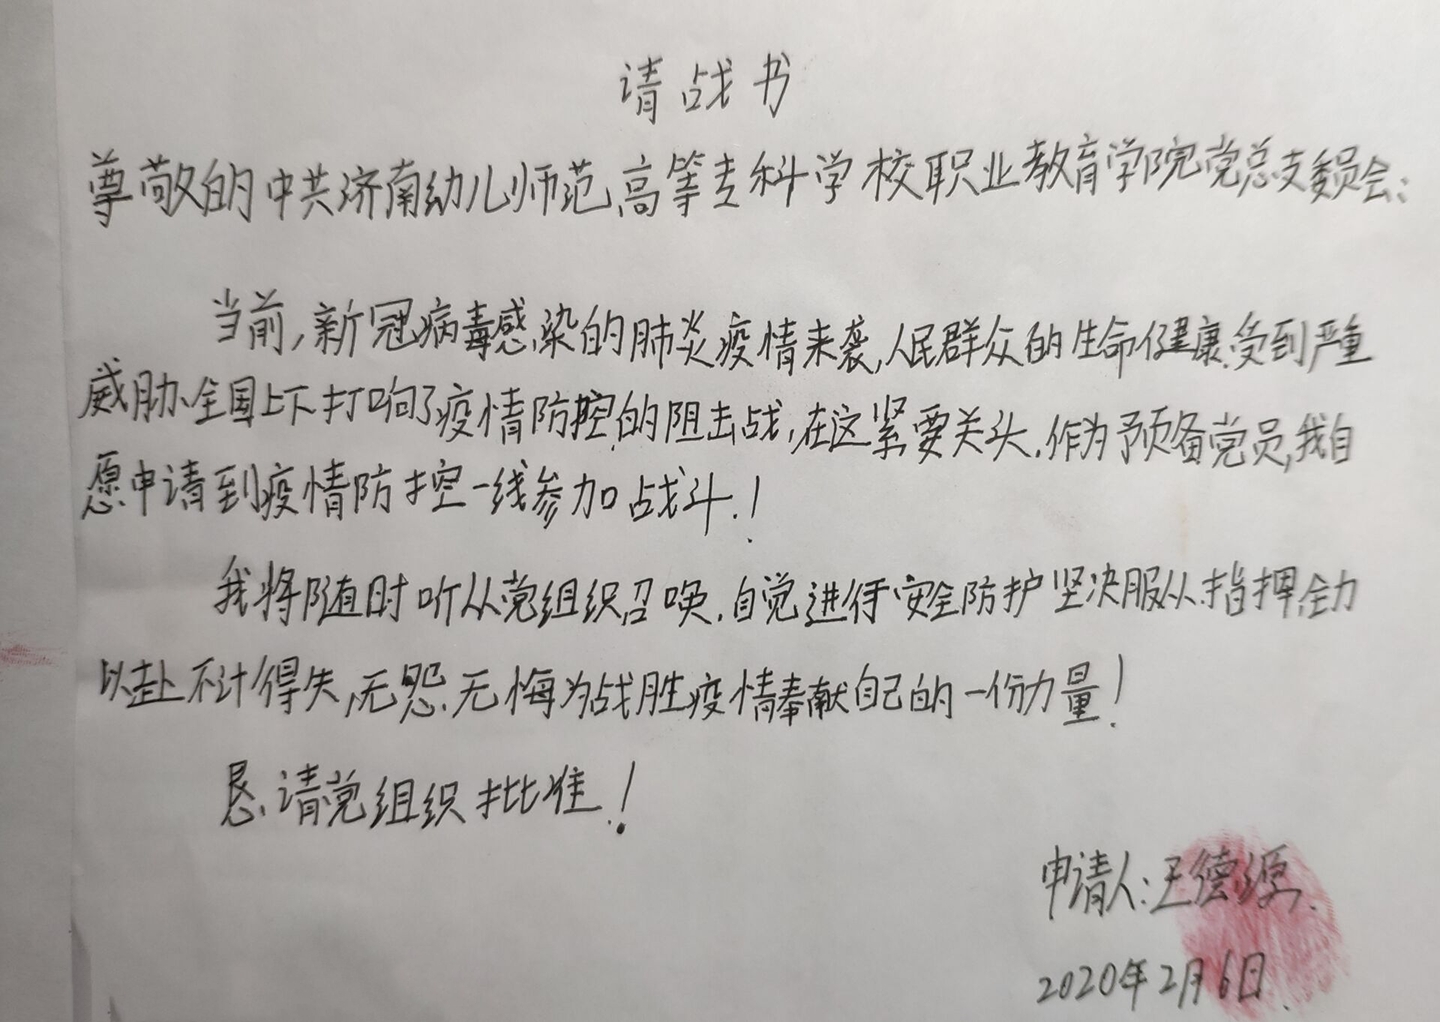 请战书
尊敬的中共济南幼儿师范高等专科学校职业教育学院党总支委员会:
当前,新冠病毒感染的肺炎疫情来袭,人民群众的生命健康受到严重
威胁、全国上下打响了疫情防控的阻击战,在这紧要关头.作为预备党员,我自
愿申请到疫情防控一线参加战斗.!
我将随时听从党组织召唤.自觉进行安全防护坚决服从指挥,全力
以赴不计得失,无怨无悔为战胜疫情奉献自己的一份力量!
恳请党组织批准!
申请人:王德源.
2020年2月6日.